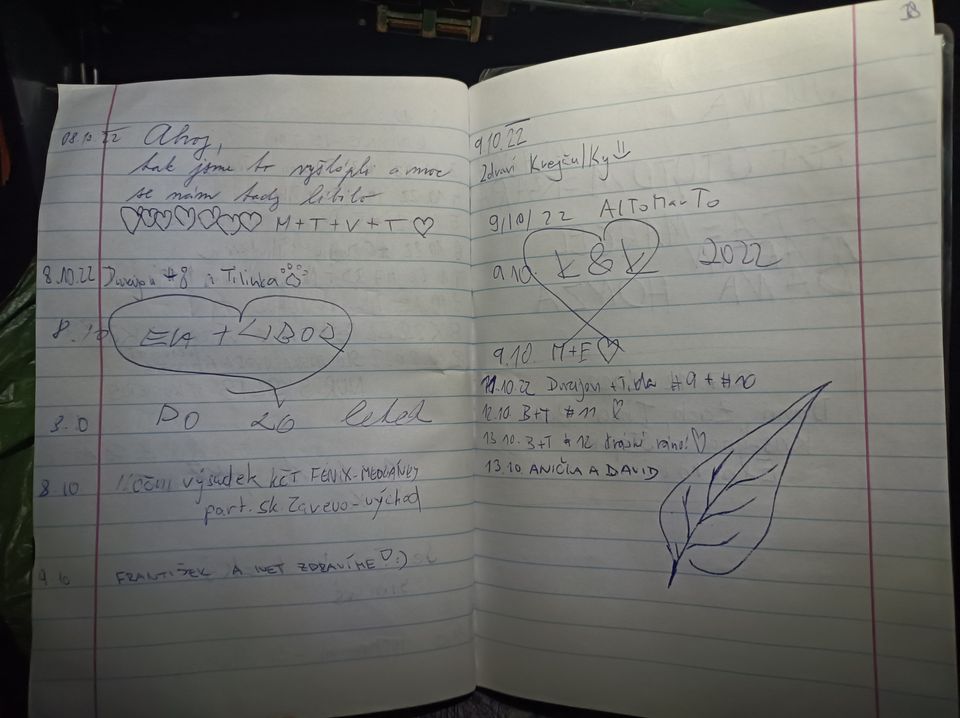 08.10.22 Ahoj,
tak jsme to vyšlápli a moc
se nám tady líbilo
M+T+V+T
8.10.22 #8 i Tilinka
8.10 EVA + LIBOR
PO 26 letech
8.10 výsadek KČT FENIX-MEDLÁNKY
part. sk. východ
9.10 FRANTIŠEK A ZDRAVÍME :)
38
9.10.22
Zdraví
9/10/22
9.10. K & K 2022
9.10. M+E
11.10.22 #9 + #10
12.10. B+T #11
13.10. B+T #12 krásné ráno!
13.10 ANIČKA A DAVID